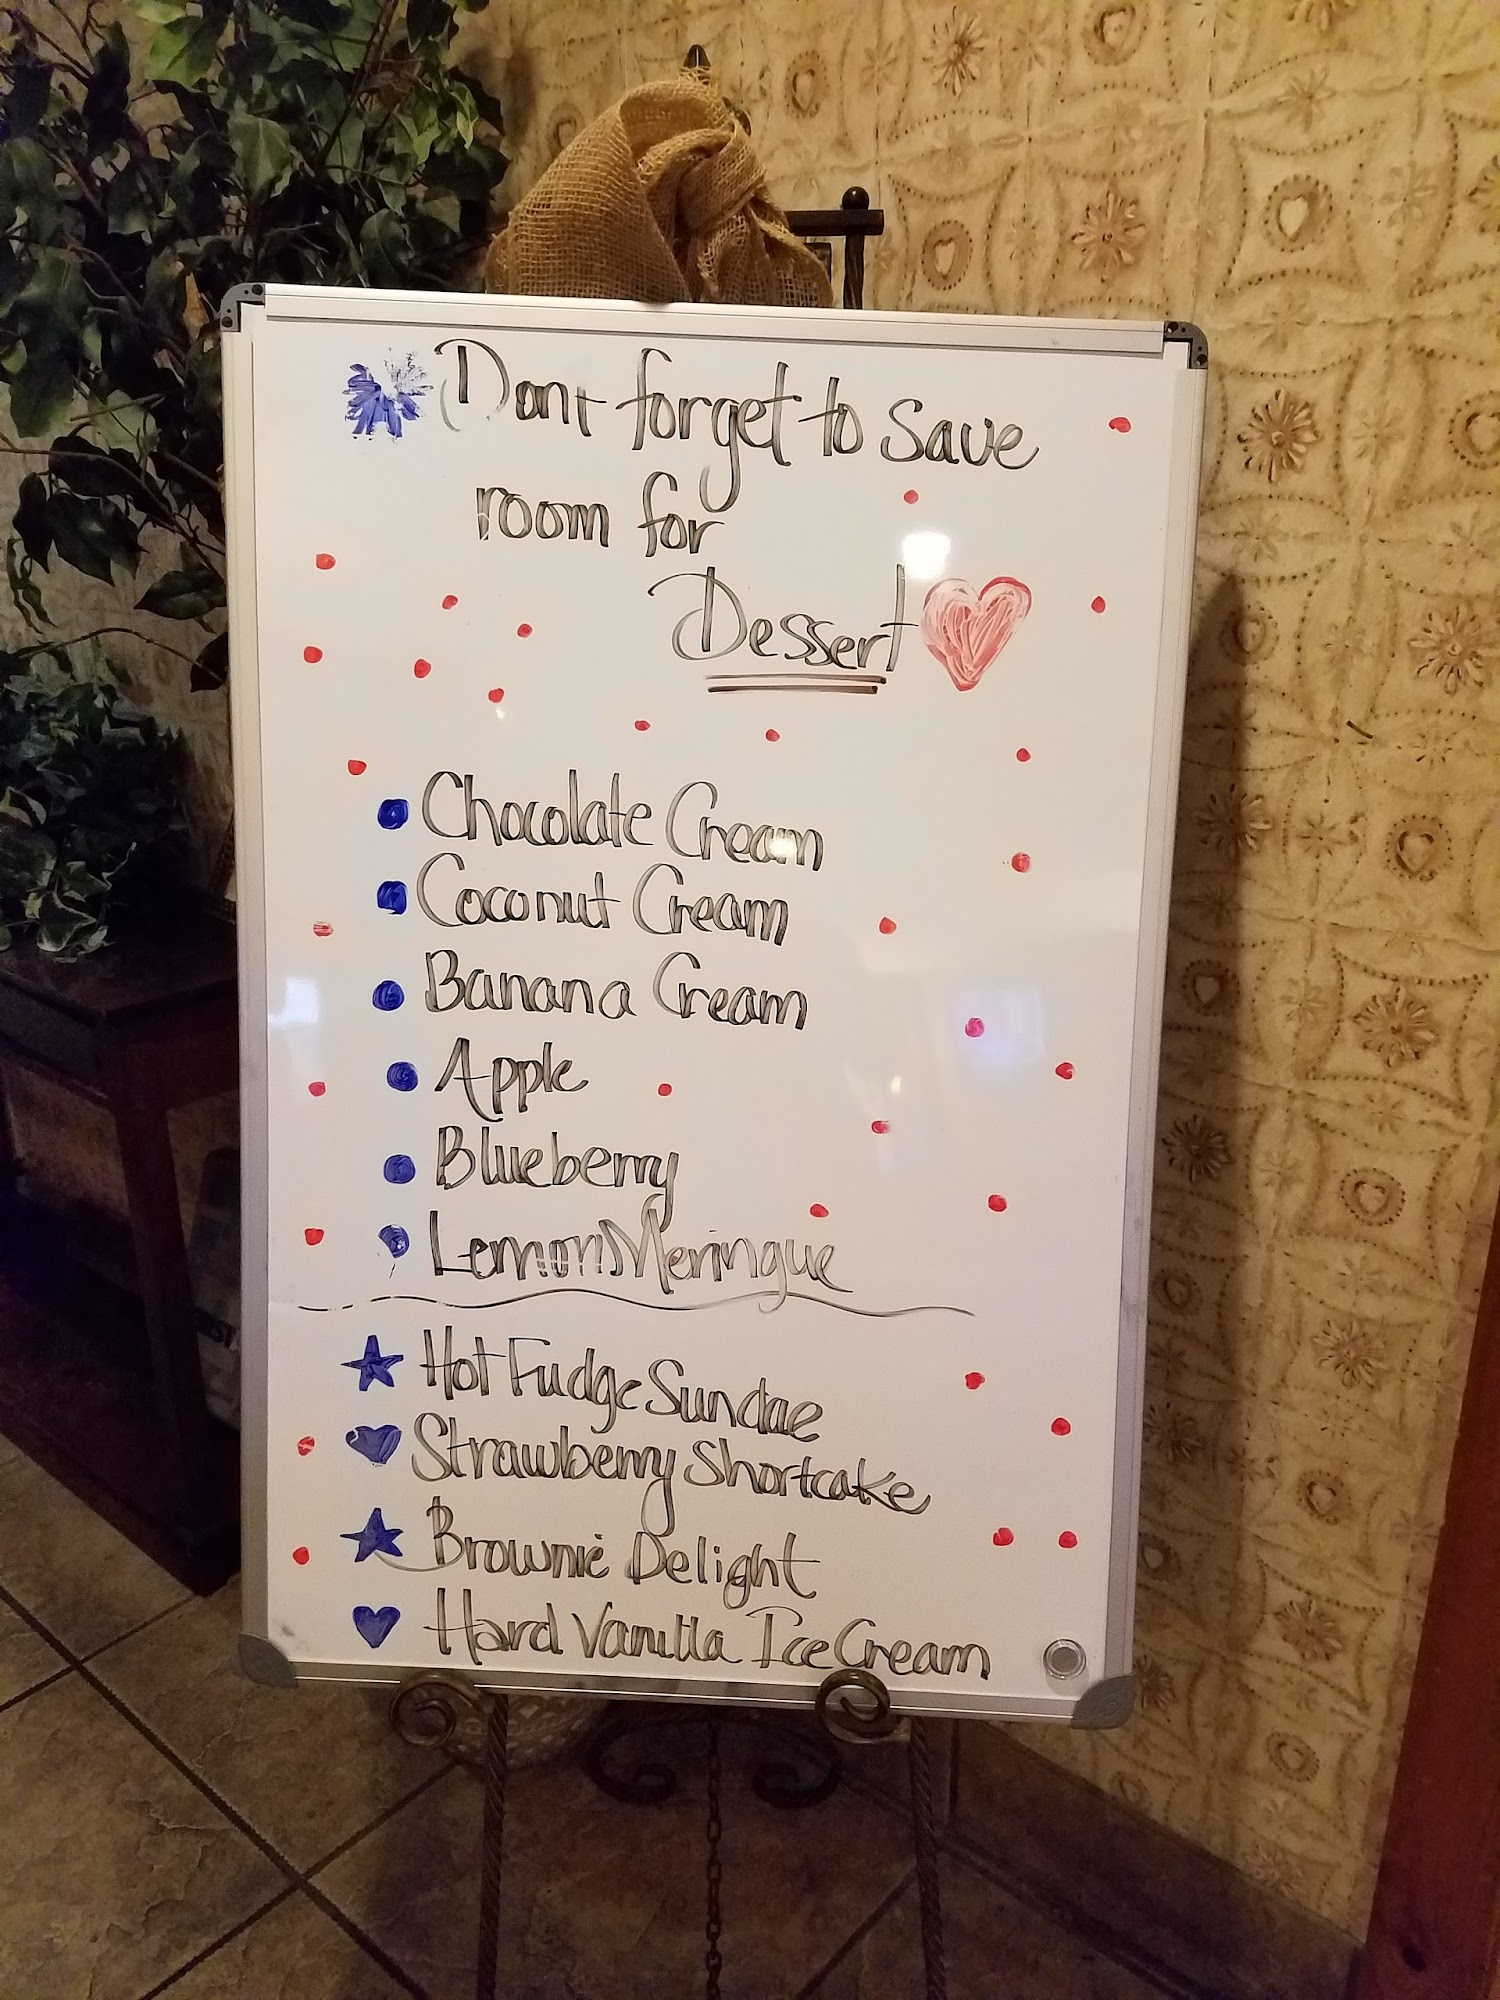 Dont forget to save
room for
Dessert
Chocolate Cream
Coconut Cream
Banana Cream
Apple
Blueberry
Lemon Meringue
Hot Fudge Sundae
Strawberry Shortcake
Brownie Delight
Hard Vanilla Ice Cream